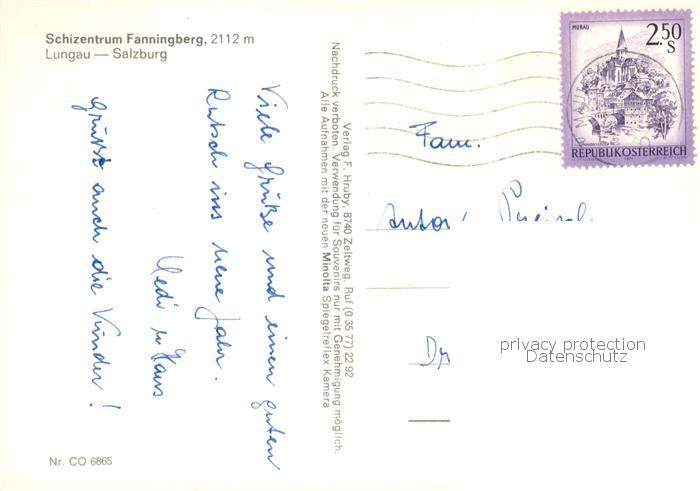 Schizentrum Fanningberg, 2112 m
Lungau — Salzburg
Viele Grüße und einen guten
Rutsch ins neue Jahr.
Hedi u Hans
Grüßt auch die Kinder!
Nr. CO 6865
Verlag F. Hruby, 8740 Zeltweg, Ruf (0 35 77) 22 92
Nachdruck verboten. Verwendung für Souvenirs nur mit Genehmigung möglich.
Alle Aufnahmen mit der neuen Minolta Spiegelreflex Kamera
MURAU
2.50
S
REPUBLIK ÖSTERREICH
Fam.
Anton
Dr
privacy protection
Datenschutz